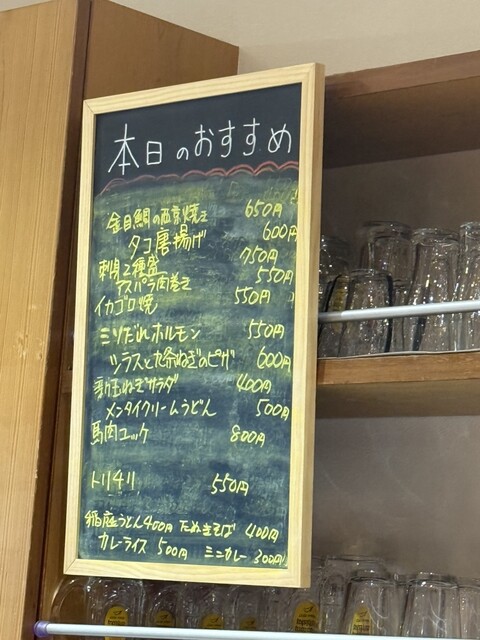 本日のおすすめ
金目鯛の西京焼き 650円
タコ唐揚げ 600円
刺身2種盛 750円
アスパラ肉巻き 550円
イカゴロ焼 550円
ミソだれホルモン 550円
シラスと九条ねぎのピザ 600円
新玉ねぎサラダ 400円
メンタイクリームうどん 500円
馬肉ユッケ 800円
トリチリ 550円
稲庭うどん400円 たぬきそば 400円
カレーライス 500円 ミニカレー 300円